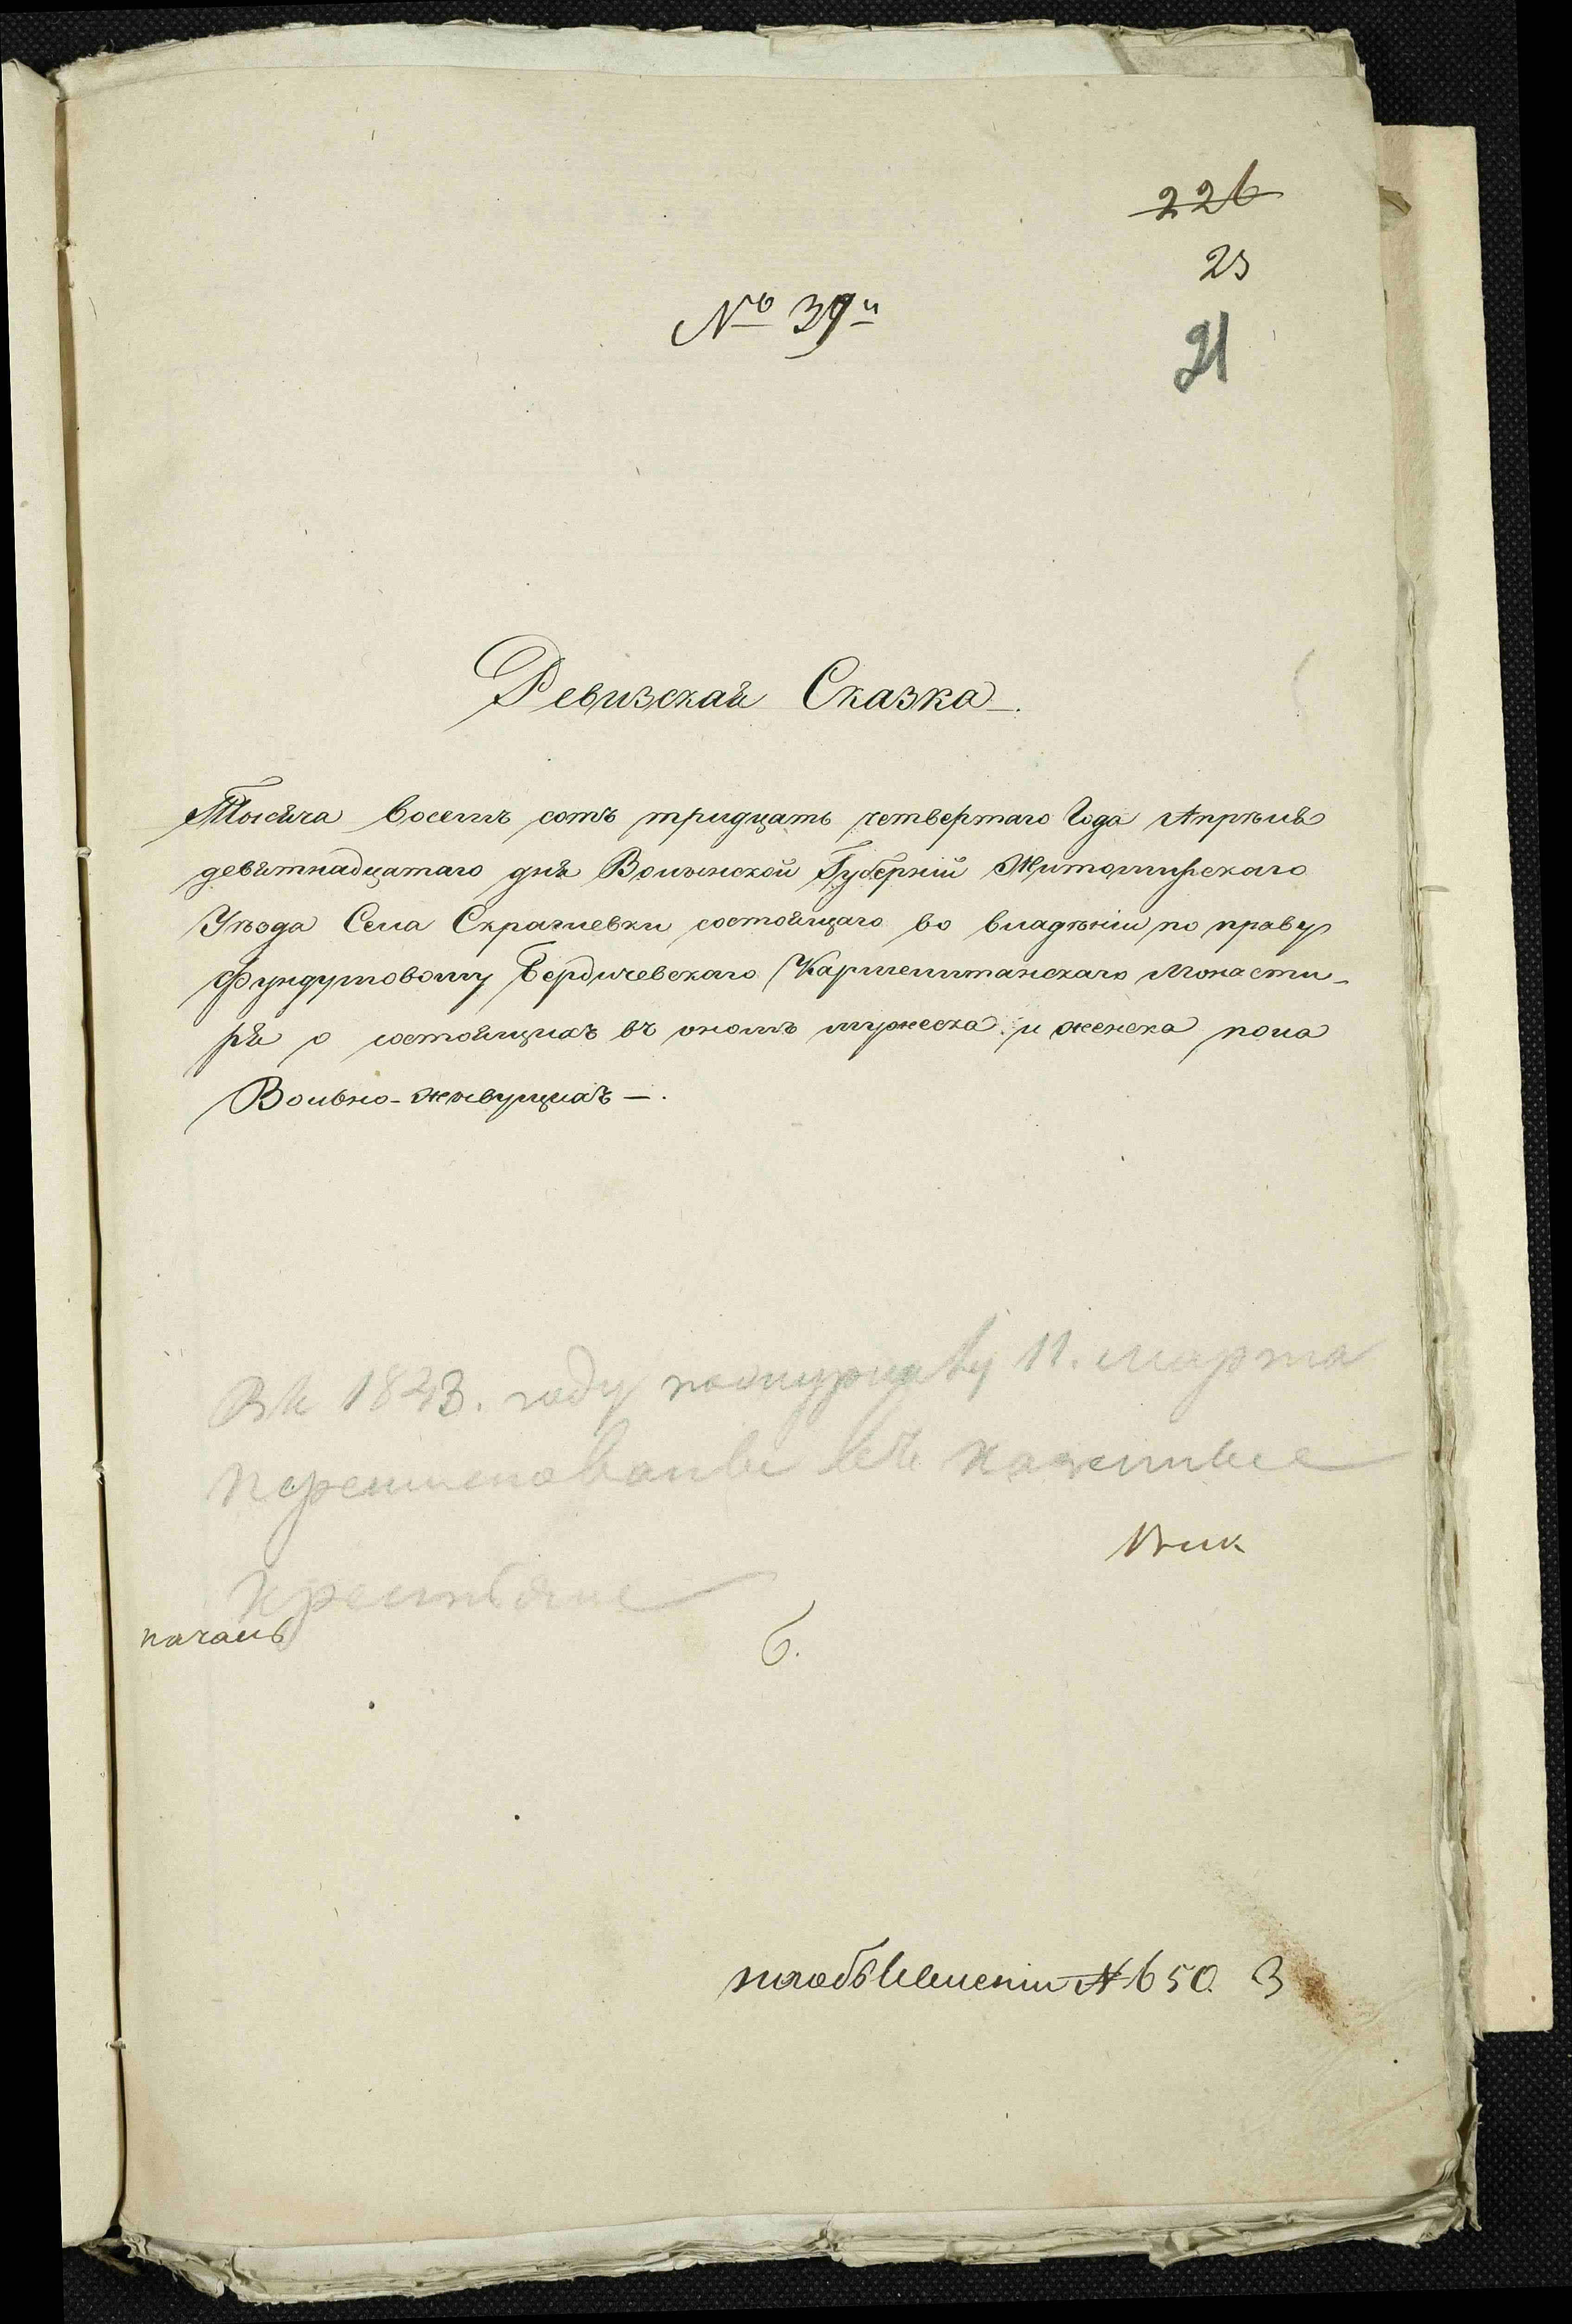 226
23
№ 39й
21
Ревизская Сказка.
Тысяча восемъ сотъ тридцать четвертаго Года Апрѣля
девятнадцатаго дня Волынской Губерніи Житомирскаго
Уѣзда Села Скраглевки состоящаго во владѣніи по праву
Фундушовому Бердичевскаго Кармелитанскаго Монасти-
ря о состоящихъ въ ономъ мужеска и женска пола
Вольно-живущихъ —.
Въ 1843. году 11. Марта
переименованы въ казенные
крестьяне
началъ
6.
по объявленію № 650. 3